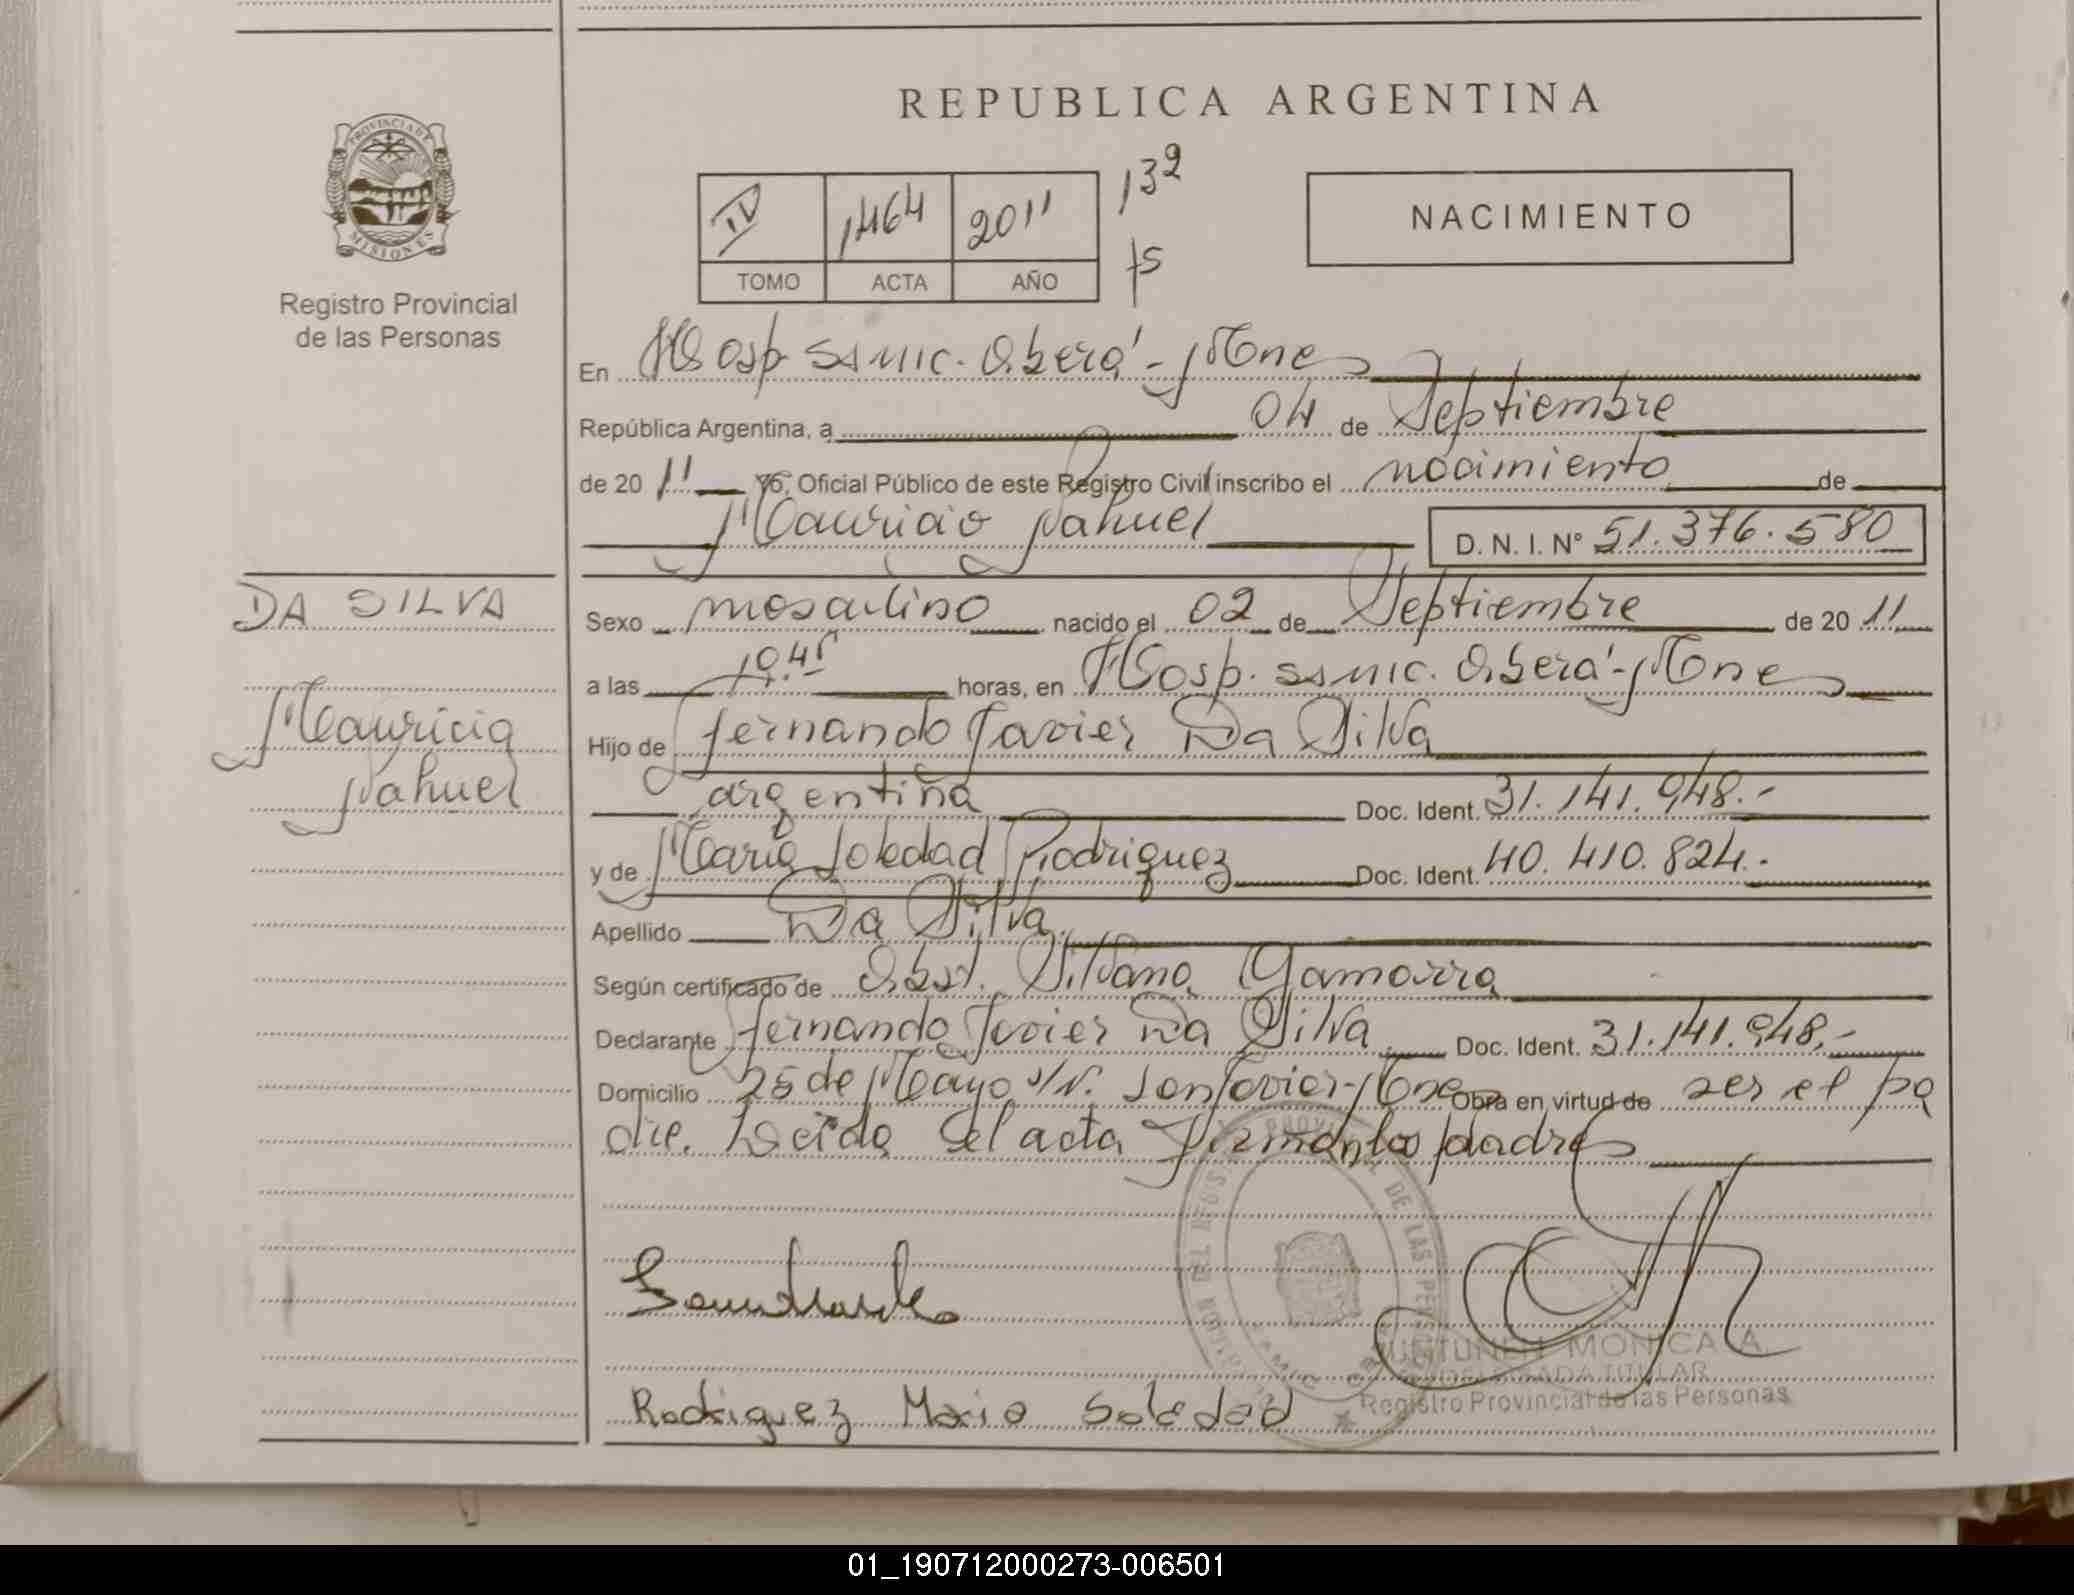 REPUBLICA ARGENTINA
PROVINCIA DE MISIONES
Registro Provincial
de las Personas
IV 1464 2011
TOMO ACTA AÑO
132
fs
NACIMIENTO
En Hosp. SAMIC. Oberá - Mnes
República Argentina, a 04 de Septiembre
de 20 11 Yo, Oficial Público de este Registro Civil inscribo el nacimiento de
Mauricio Nahuel D. N. I. Nº 51.376.580
DA SILVA
Mauricio
Nahuel
Sexo masculino nacido el 02 de Septiembre de 20 11
a las horas, en Hosp. SAMIC. Oberá - Mnes
Hijo de Fernando Javier Da Silva
argentina Doc. Ident. 31.141.948.-
y de María Soledad Rodriguez Doc. Ident. 40.410.824.-
Apellido Da Silva
Según certificado de Obst. Silvana Gamorra
Declarante Fernando Javier Da Silva Doc. Ident. 31.141.948.-
Domicilio 25 de Mayo s/N. San Javier - Mnes Obra en virtud de ser el pa
dre. Leida el acta firman los padres
Rodriguez Maria Soledad
MONICA A.
DELEGADA TITULAR
Registro Provincial de las Personas
01_190712000273-006501